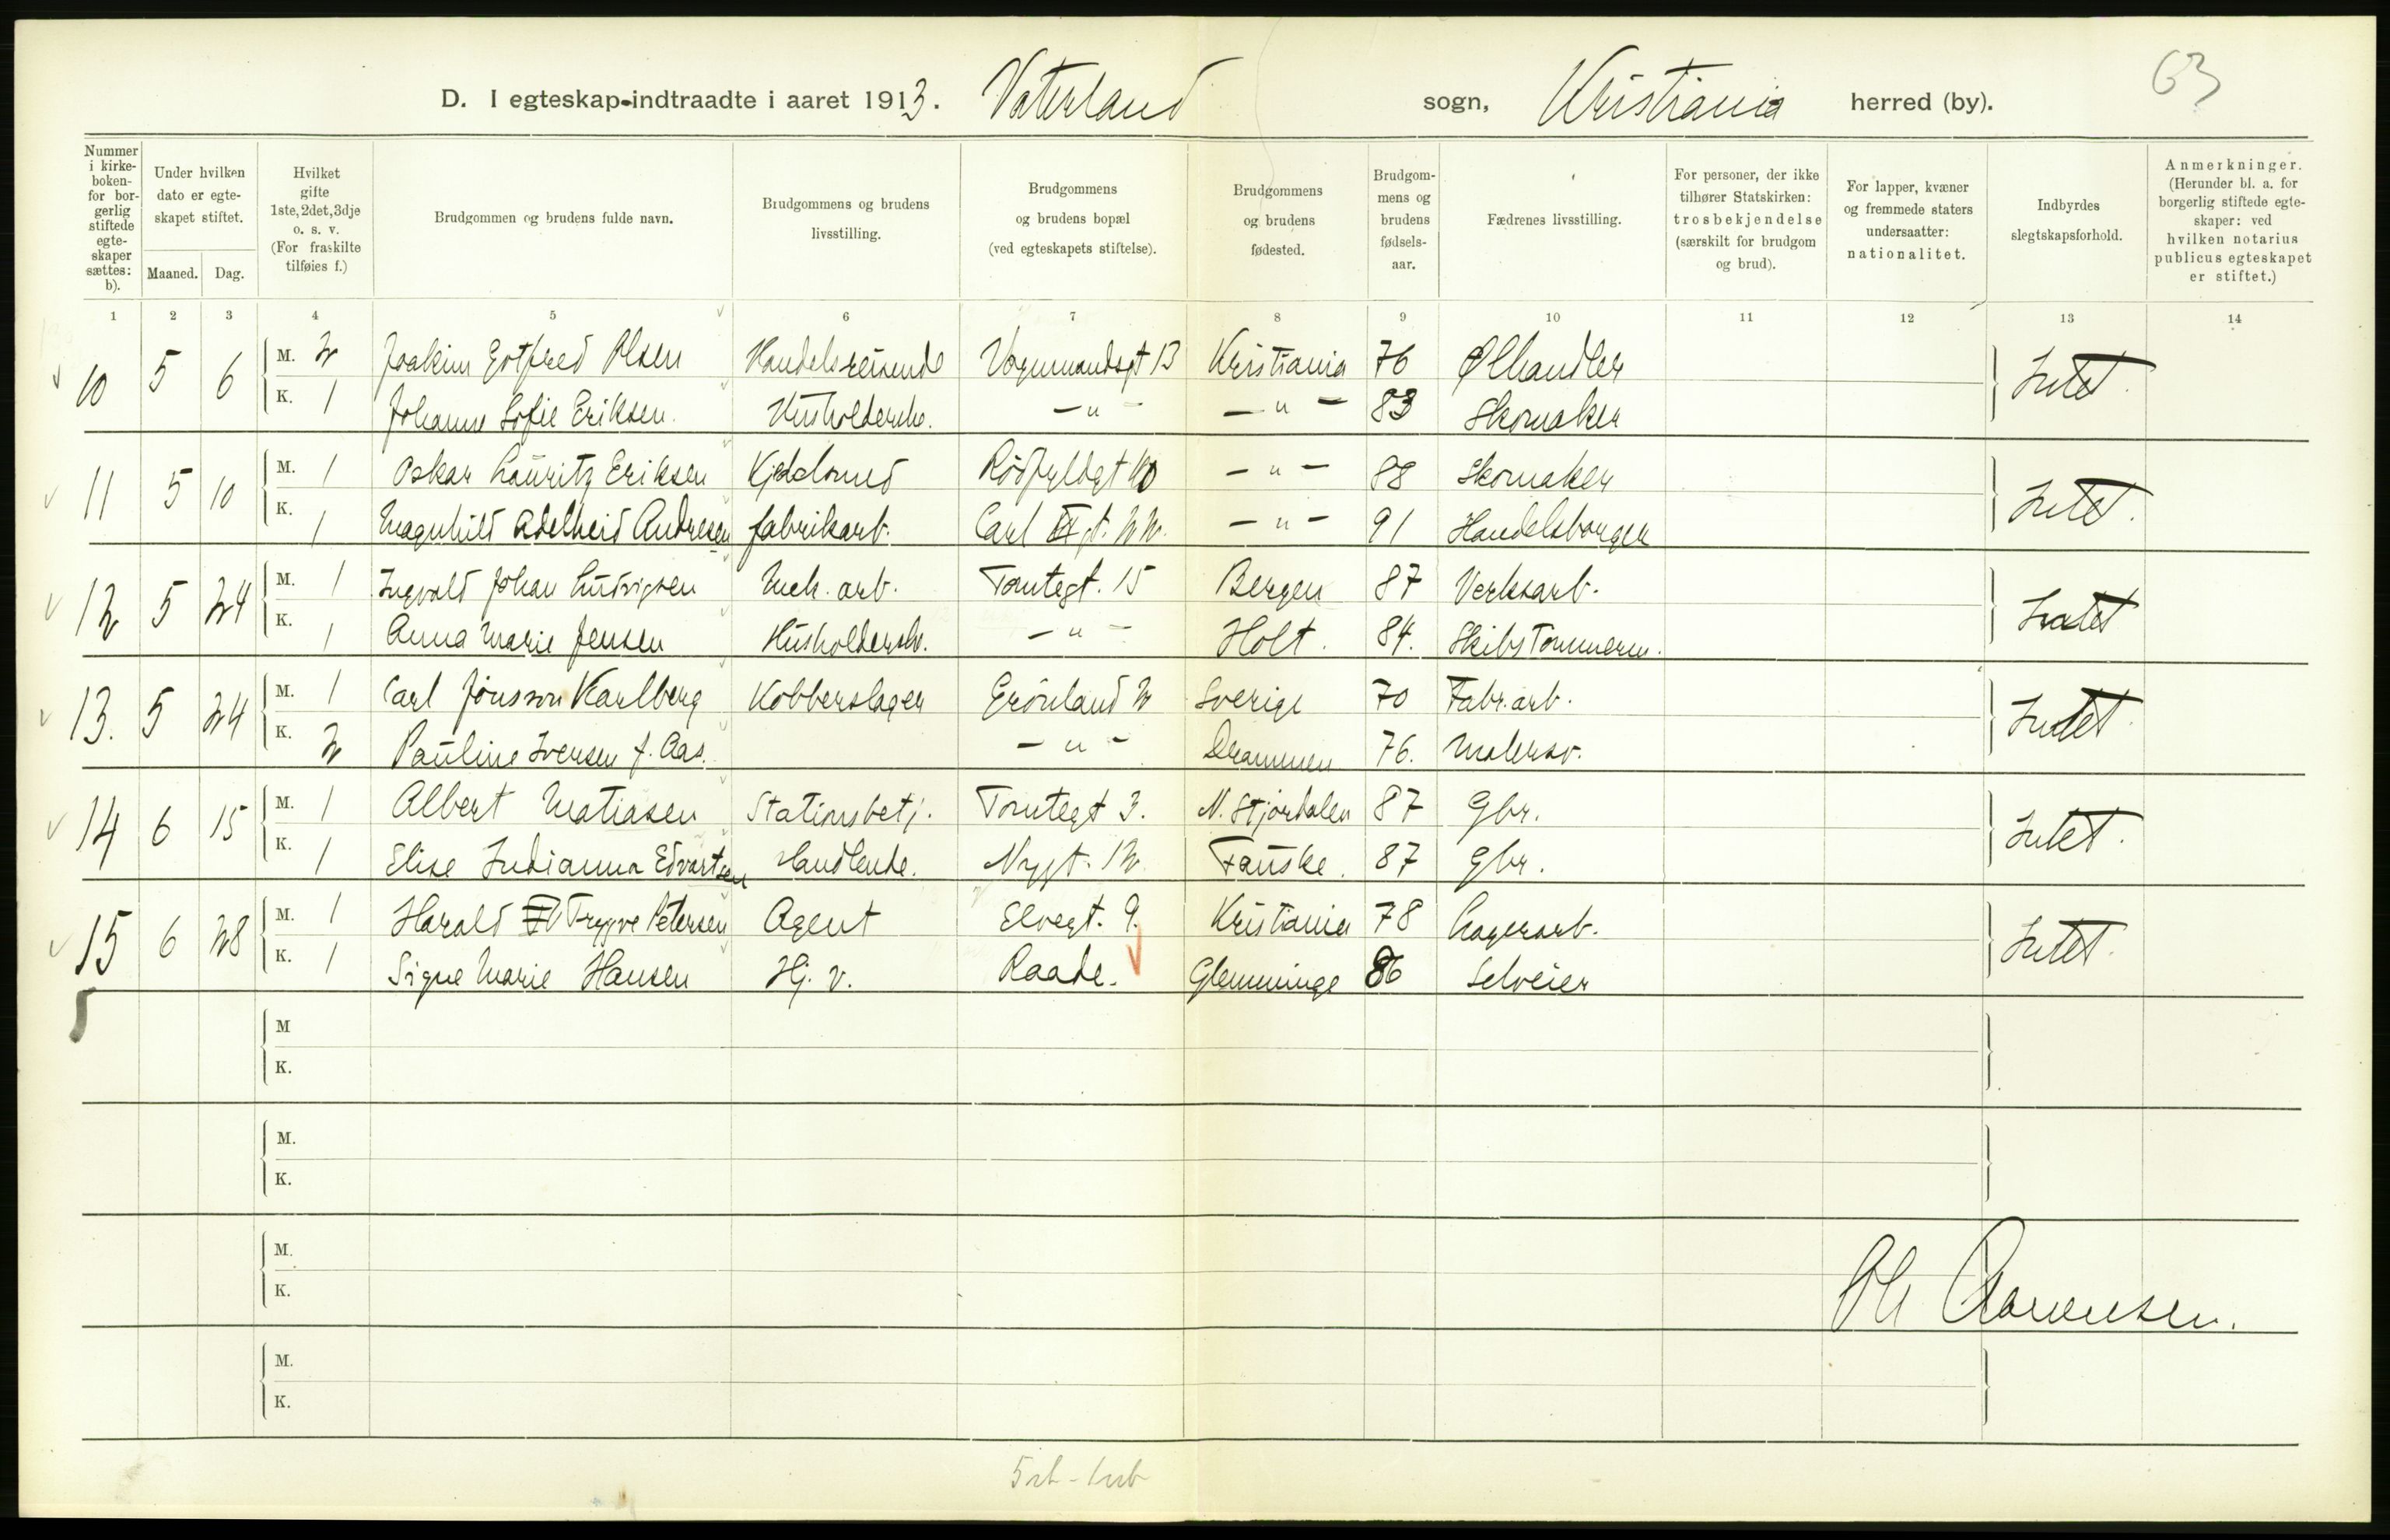 63
D. I egteskap indtraadte i aaret 1913. Vaterland sogn, Kristiania herred (by).
Nummer i kirke-boken- for bor-gerlig stiftede egte-skaper sættes: b).
Under hvilken dato er egte-skapet stiftet.
Maaned. Dag.
Hvilket gifte 1ste, 2det, 3dje o. s. v. (For fraskilte tilføies f.)
Brudgommen og brudens fulde navn.
Brudgommens og brudens livsstilling.
Brudgommens og brudens bopæl (ved egteskapets stiftelse).
Brudgommens og brudens fødested.
Brudgom-mens og brudens fødsels-aar.
Fædrenes livsstilling.
For personer, der ikke tilhører Statskirken: trosbekjendelse (særskilt for brudgom og brud).
For lapper, kvæner og fremmede staters undersaatter: nationalitet.
Indbyrdes slegtskapsforhold.
Anmerkninger. (Herunder bl. a. for borgerlig stiftede egte-skaper: ved hvilken notarius publicus egteskapet er stiftet.)
1 2 3 4 5 6 7 8 9 10 11 12 13 14
10 5 6 M. 2 Joakim Gotfred Olsen Handelsreisende Vognmandsgt 13 Kristiania 76 Ølhandler Intet.
K. 1 Johanne Sofie Eriksen. Husholderske. — " — — " — 83 Skomaker
11 5 10 M. 1 Oskar Lauritz Eriksen Kjedelsmed — " — 88 Skomaker Intet.
K. 1 Magnhild Adelheid Andresen fabrikarb. — " — 91 Handelsborger
12 5 24 M. 1 Ingvald Johan Ludvigsen Mek. arb. Tomtegt. 15 Bergen 87 Verksarb. Intet
K. 1 Anna Marie Jensen Husholdersk. — " — Holt. 84. Skibstømmerm.
13. 5 24 M. 1 Carl Jönsson Karlberg Kobberslager Grønland 2 Sverige 70 Fabr. arb. Intet.
K. 2 Pauline Iversen f. Aas. — " — Drammen 76. Malersv.
14 6 15 M. 1 Albert Matiasen Stationsbetj. Tomtegt 3. N. Stjørdalen 87 Gbr. Intet.
K. 1 Elise Indianna Edvartsen Handlende. Nygt. 12 Fauske. 87 Gbr.
15 6 28 M. 1 Harald Trygve Petersen Agent Elvegt. 9. Kristiania 78 Lagerarb. Intet.
K. 1 Signe Marie Hansen Hj. v. Raade. Glemminge 86 Selveier
M
K.
M.
K.
M.
K.
M.
K.